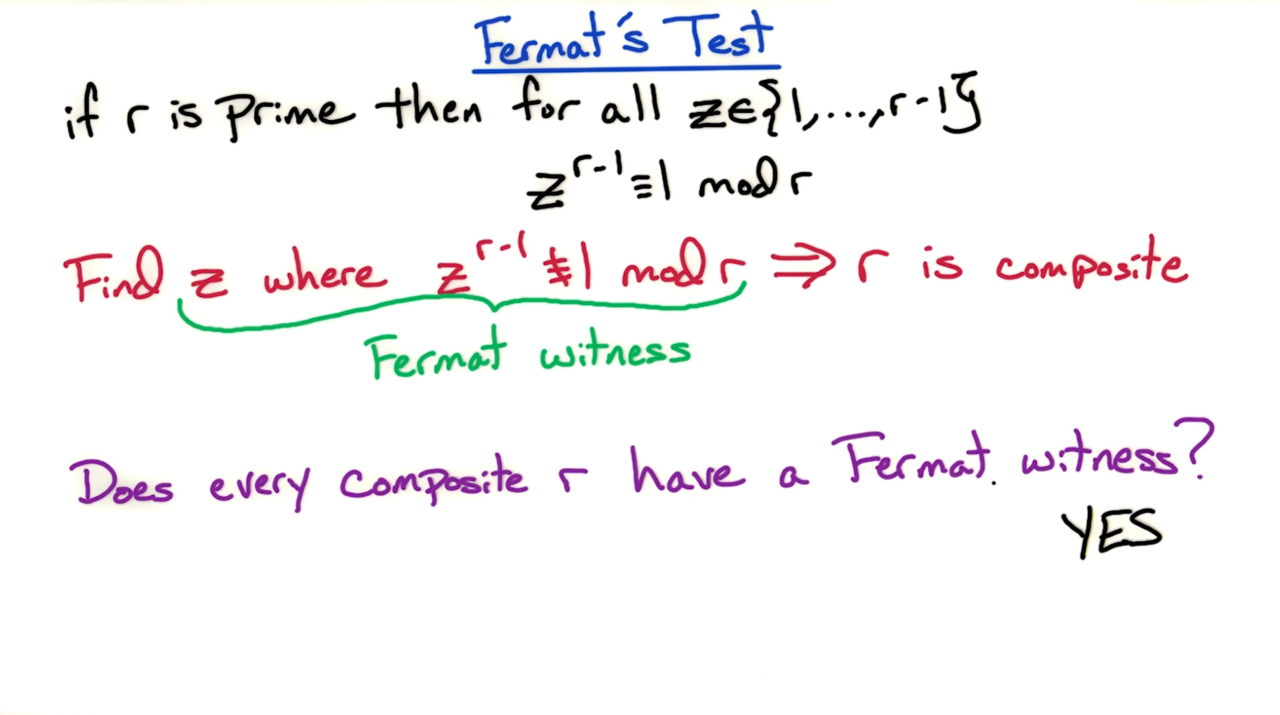 Fermat's Test
if r is prime then for all z∈{1,...,r-1}
z^{r-1} ≡ 1 mod r
Find z where z^{r-1} ≢ 1 mod r ⇒ r is composite
Fermat witness
Does every composite r have a Fermat witness?
YES